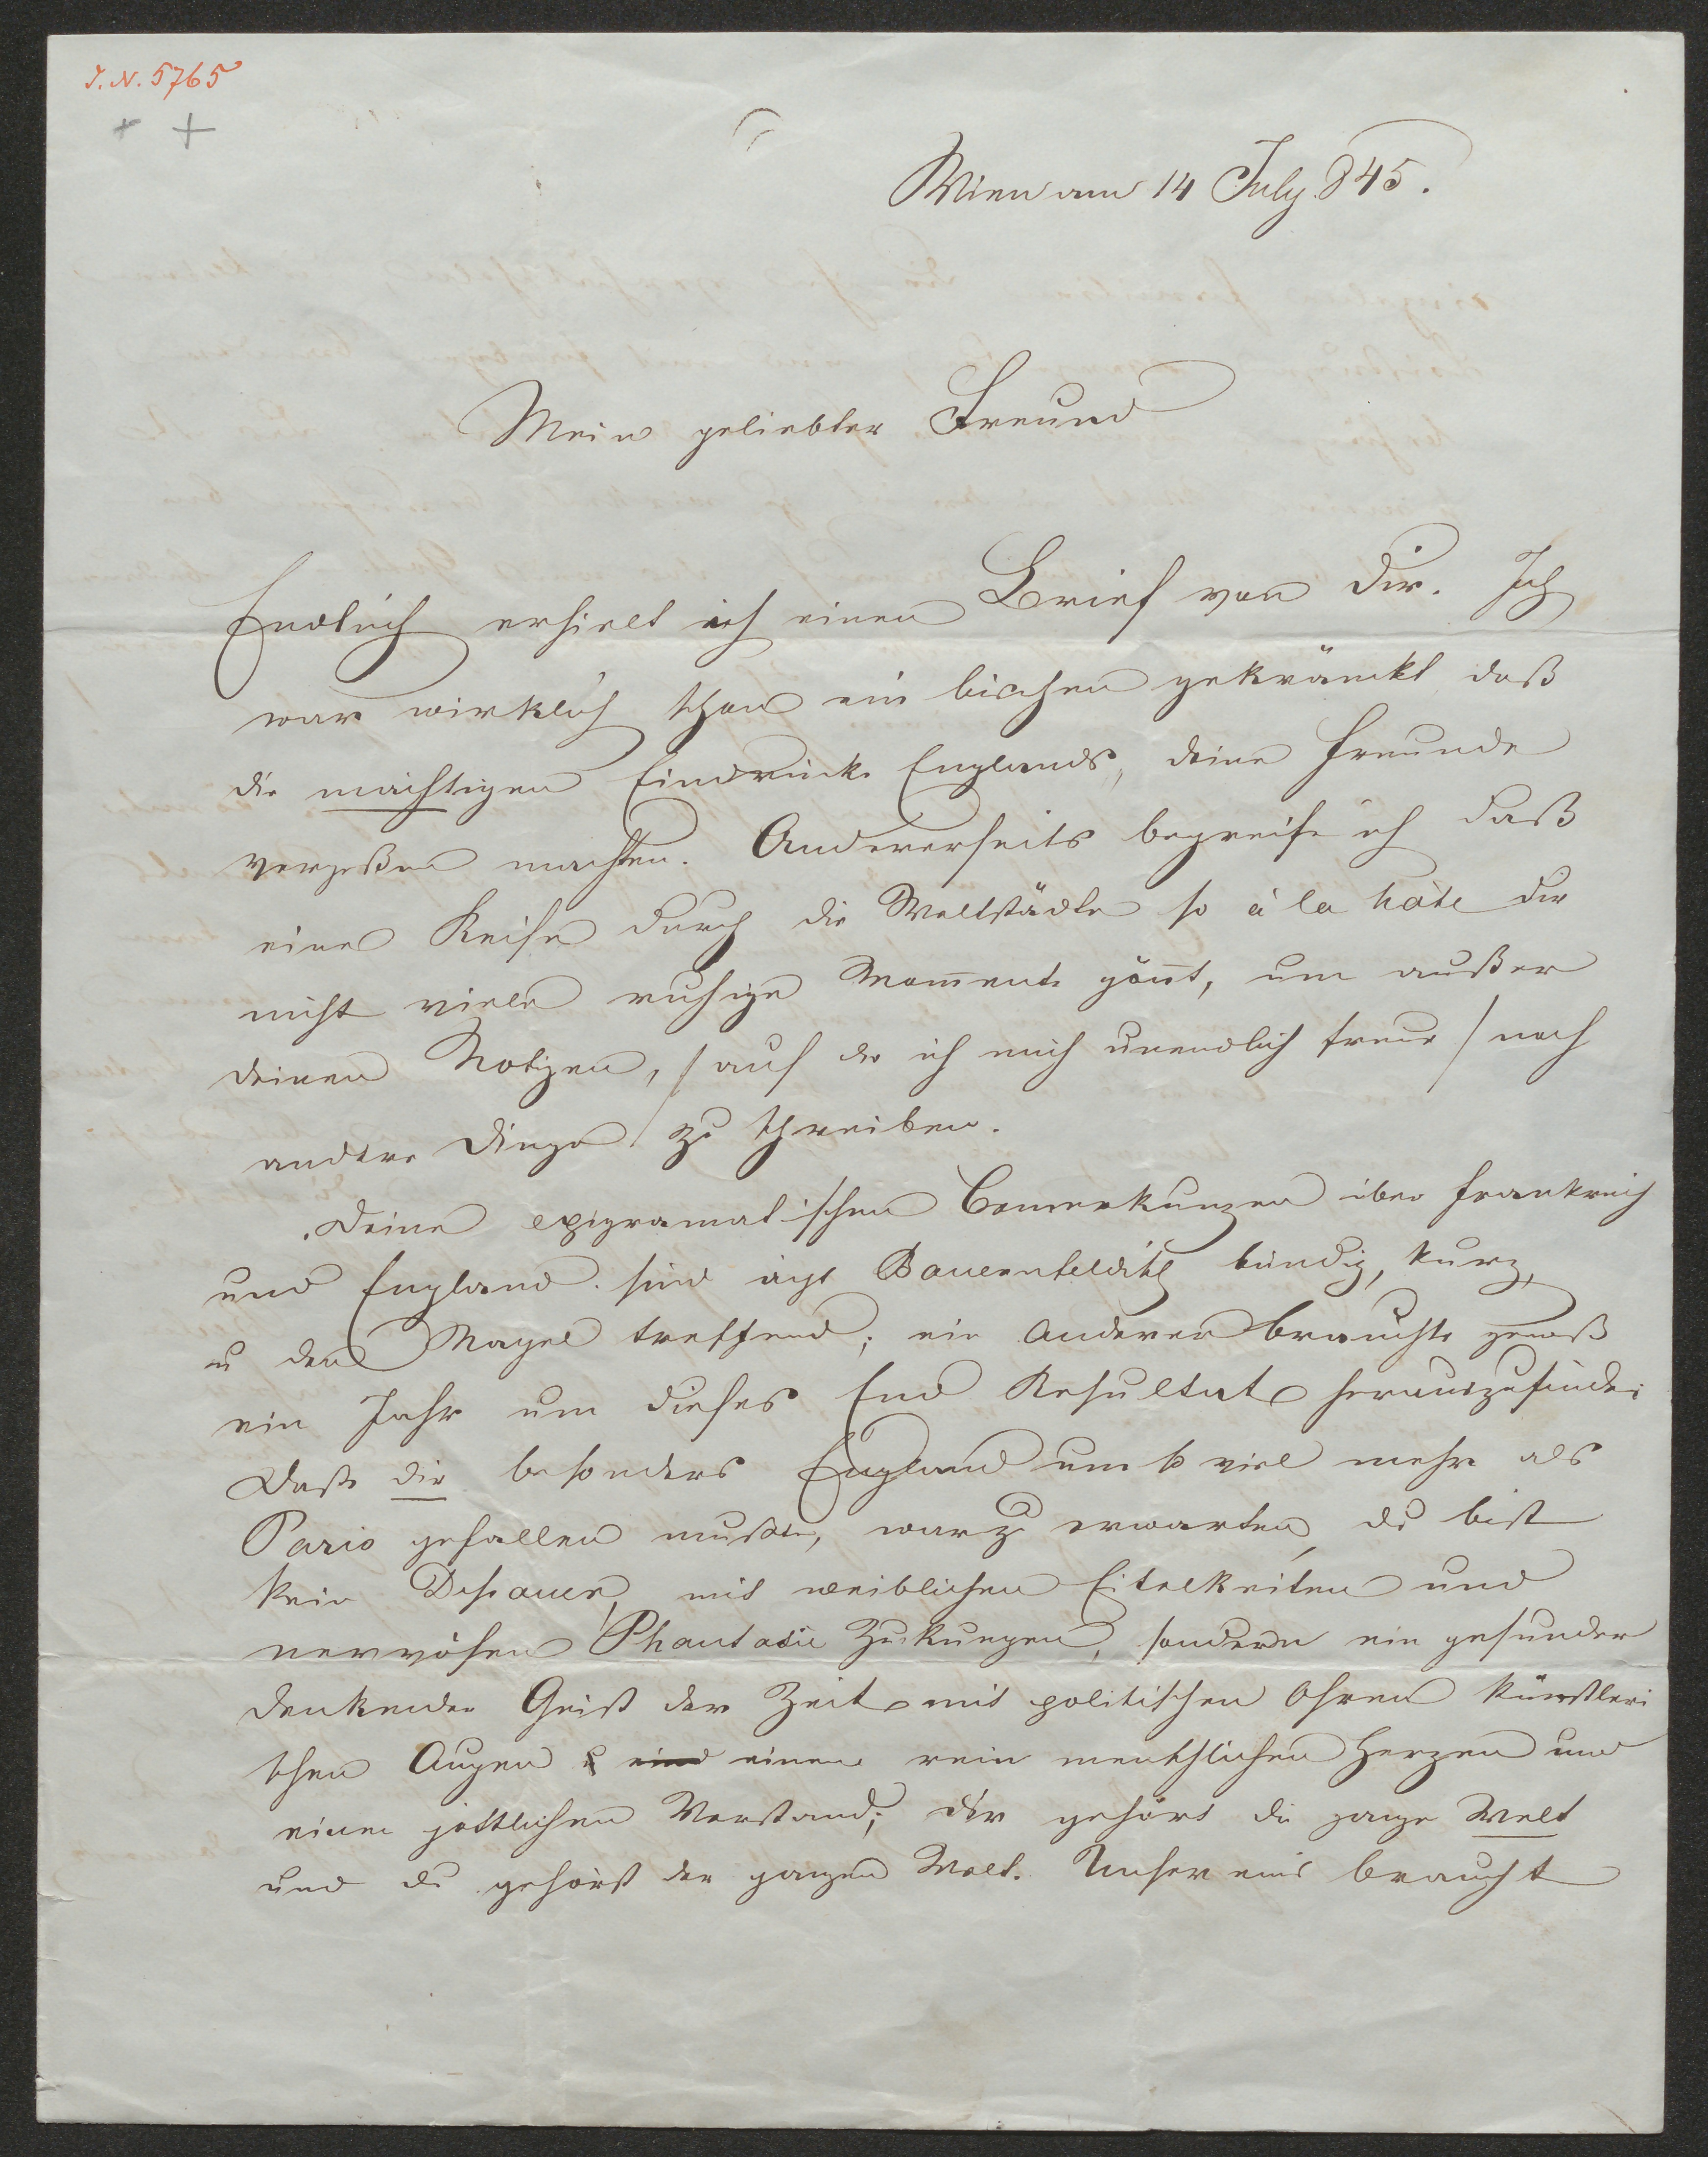 I. N. 5765
Wien am 14 July 845.
Mein geliebter Freund
Endlich erhielt ich einen Brief von dir. Ich
war wirklich schon ein bischen gekränckt daß
die mächtigen Eindrücke Englands, deine Freunde
vergeßen machten. Andererseits begreife ich daß
eine Reise durch die Weltstädte so à la hâte dir
nicht viele ruhige Momente gönnt, um außer
deinen Notizen, / auf die ich mich unendlich freue / noch
andere Dinge zu schreiben.
Deine epigramatischen Bemerkungen über Frankreich
und England sind ächt Bauernfeldisch bündig, kurz,
u den Nagel treffend; ein Anderer brauchte gewiß
ein Jahr um dieses End Resultat herauszufinden
Daß dir besonders England um so viel mehr als
Paris gefallen mußte, war zu erwarten, du bist
kein Dessauer, mit weiblichen Eitelkeiten und
nervösen Phantasie Zukungen, sondern ein gesunder
denkender Geist der Zeit mit politischen Ohren künstleri
schen Augen u eind einem rein menschlichen Herzen und
einem göttlichen Verstand; dir gehört die ganze Welt
und du gehörst der ganzen Welt. Unser eins braucht